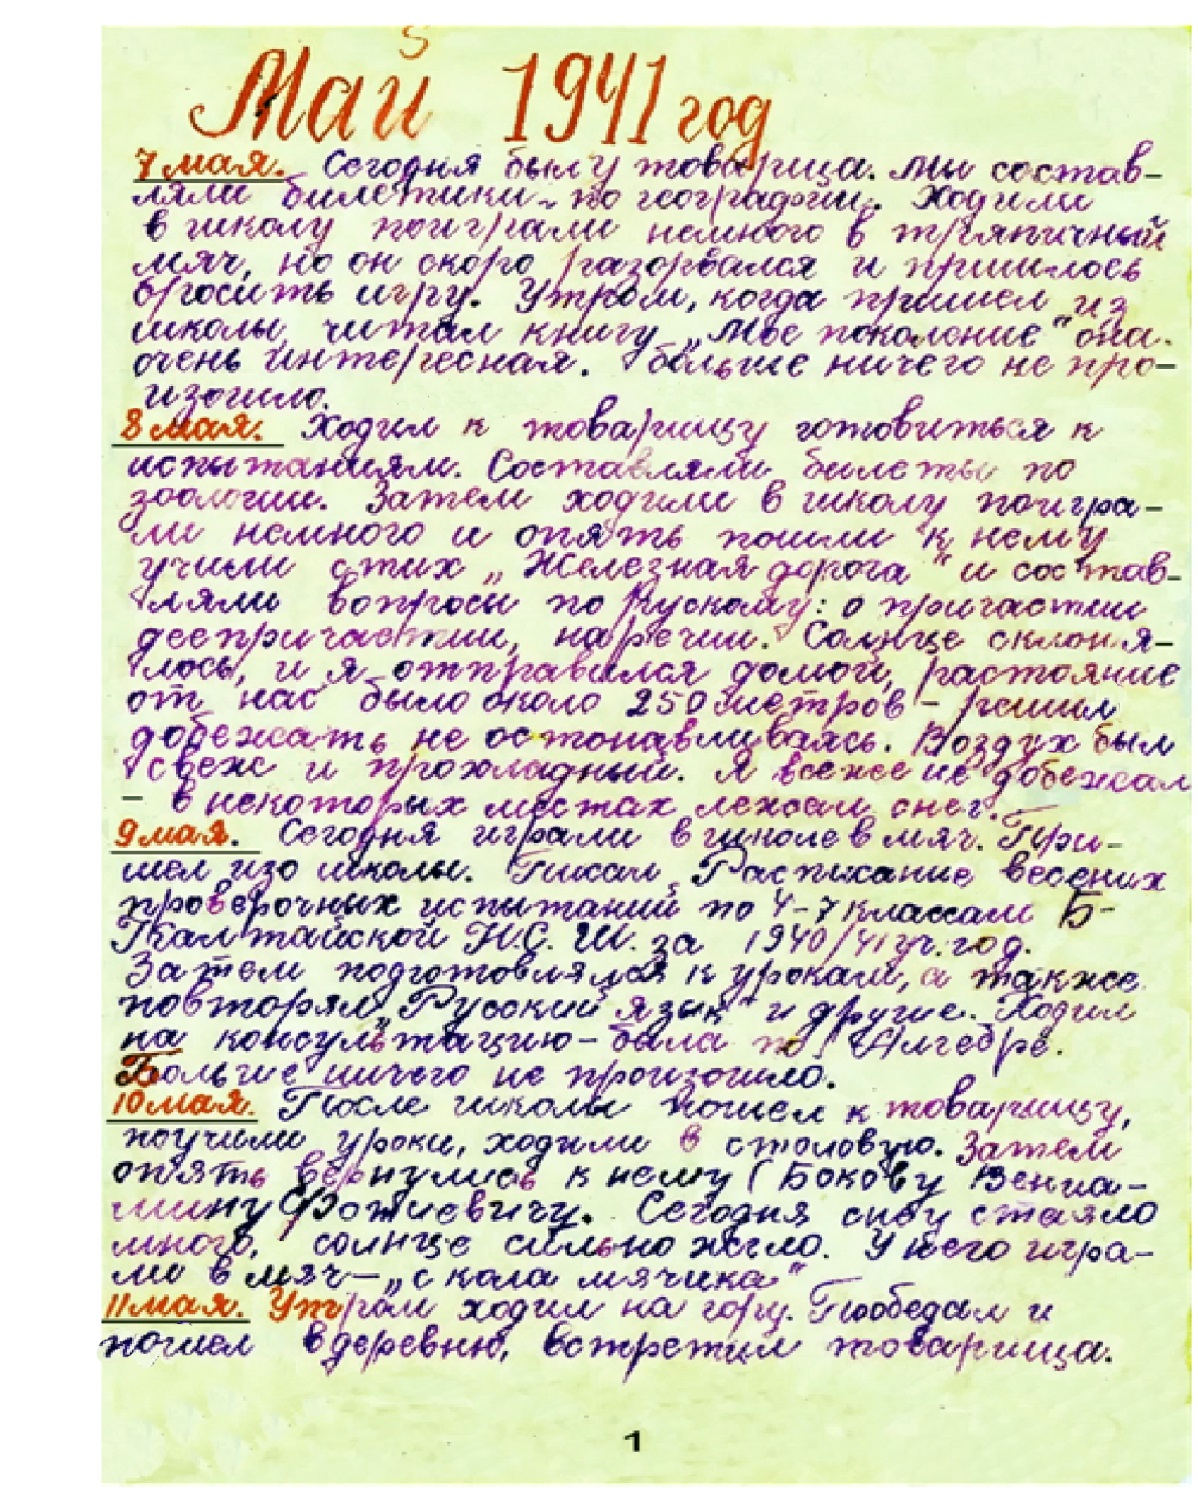 5
Май 1941 год
7 мая. Сегодня был у товарища. Мы состав-
ляли билетики по географии. Ходили
в школу поиграли немного в тряпичный
мяч, но он скоро разорвался и пришлось
бросить игру. Утром, когда пришел из
школы, читал книгу „Мое поколение" она
очень интересная. Больше ничего не про-
изошло.
8 мая. Ходил к товарищу готовиться к
испытаниям. Составляли билеты по
зоологии. Затем ходили в школу поигра-
ли немного и опять пошли к нему
учили стих „Железная дорога" и состав-
ляли вопросы по Рускому: о причастии
деепричастии, наречии. Солнце склоня-
лось, и я отправился домой, растояние
от нас было около 250 метров – решил
добежать не остонавливаясь. Воздух был
свеж и прохладный. Я все же не добежал
– в некоторых местах лежал снег.
9 мая. Сегодня играли в школе в мяч. При-
шел изо школы. Писал „Расписание весених
проверочных испытаний по 4-7 классам Б-
Калтайской Н.С.Ш. за 1940/41 уч. год.
Затем подготовлялся к урокам, а также
повторял „Русский язык" и другие. Ходил
на консультацию – была по Алгебре.
Больше ничего не произошло.
10 мая. После школы пошел к товарищу,
поучили уроки, ходили в столовую. Затем
опять вернулись к нему (Бокову Вениа-
мину Фотиевичу. Сегодня снегу стаяло
много, солнце сильно жгло. У него игра-
ли в мяч – „с кола мячика"
11 мая. Утром ходил на гору. Пообедал и
пошел в деревню, встретил товарища.
1